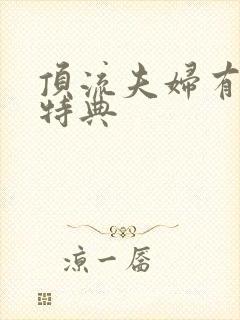 頂流夫婦有
特典
涼一屭